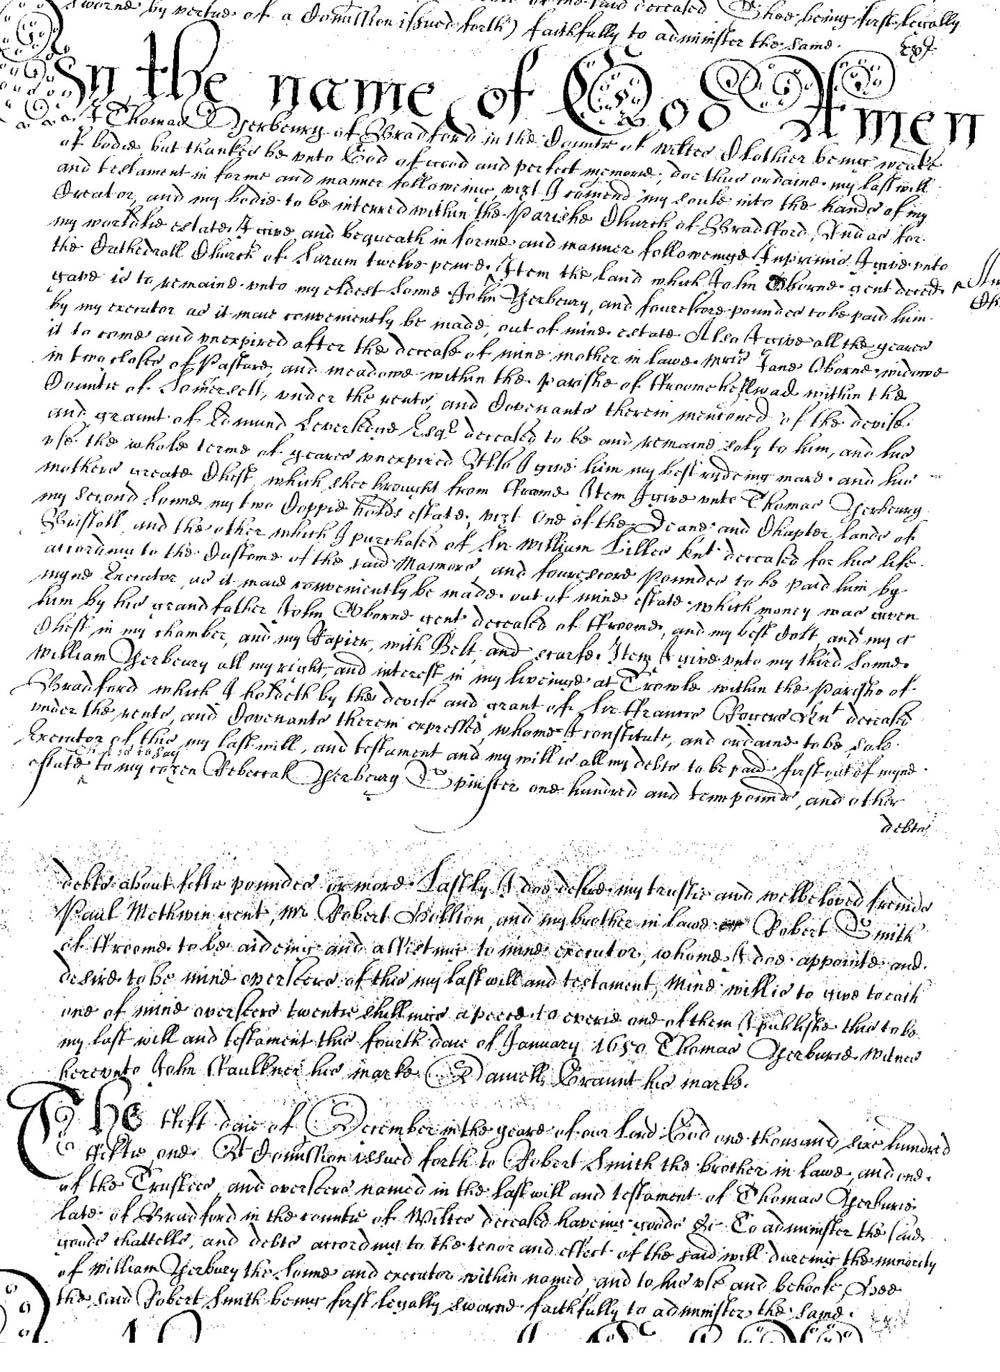 sworne by vertue of a Comission issued forth) faithfully to administer the same.
Exp.
In the name of God Amen
I Thomas Yerbeury of Bradford in the Countie of Wiltes Clothier being weake
of bodie but thankes be vnto God of good and perfect memorie, doe thus ordaine my last will
and testament in forme and manner followinge, vizt I comend my soule into the hands of my
Creator, and my bodie to be interred within the Parishe Church of Bradford, And as for
my worldlie estate, I give and bequeath in forme and manner followinge Inprimis I give vnto
the Cathedrall Church of Sarum twelve pence, Item the land which John Oborne gent deced
gave is to remaine vnto my eldest sonne John Yerbeury, and fourscore poundes to be paid him
by my executor as it maie conveniently be made, out of mine estate Also I give all the yeares
it to come and vnexpired after the decease of mine mother in lawe Mris Jane Oborne widowe
in two closes of Pasture, and meadowe within the parishe of Froome within the
Countie of Somersett, vnder the rents, and Covenants therein mentioned of the devise
and graunt of Edmund Leversedge Esqr deceased to be and remaine soly to him, and his
vse the whole terme of yeares vnexpired Also I give him my best rydeing mare, and his
mothers greate Chest, which shee brought from Froome Item I give vnto Thomas Yerbeury
my second sonne my two Coppie holds estate, vizt One of the Deane and Chapter lands of
Bristoll, and the other which I purchased of Sr William Lilles Knt deceased for his life
according to the Custome of the said Mannors, and fourescore poundes to be paid him by
myne Executor, as it maie conveniently be made out of mine estate which money was given
him by his grandfather John Oborne gent deceased of Froome, and my best Colt, and my
Chest in my chamber, and my Rapier, with Belt and scarfe. Item I give vnto my third sonne
William Yerbeury all my right, and interest in my liveinge at Trowle within the parishe of
Bradford which I holdeth by the devise and grant of Sir Francis Knt deceased
vnder the rents, and Covenants therein expressed, whome I constitute, and ordaine to be sole
Executor of this my last will, and testament and my will is all my debts to be paid first out of myne
that is to say
estate to my cozen Rebeccah Yerbeury Spinster one hundred and tenn pounds, and other
debts
debts about fiftie poundes or more Lastly I doe desire my trustie and welbeloved freinds
Paul Methwin gent, Mr Robert, and my brother in lawe Robert Smith
of Froome to be aideing and assisting to mine executor, whome I doe appointe and
desire to be mine overseers of this my last will and testament, mine will is to give to each
one of mine overseers twentie shillings apeece to everie one of them I publishe this to be
my last will and testament this fourth daie of January 1650 Thomas Yerburie Witnes
herevnto John Faulkner his marke Daniell Graunt his marke.
The first daie of December in the yeare of our Lord God one thousand, sixe hundred
fiftie one. A Comission issued forth to Robert Smith the brother in lawe, and one
of the Trustees, and overseers named in the last will and testament of Thomas Yerburie
late of Bradford in the countie of Wiltes deceased haveing goods &c To administer the said
goods chattells, and debts according to the tenor and effect of the said will dureing the minority
of William Yerbury the sonne and executor within named, and to his vse and behoofe Hee
the said Robert Smith being first legally sworne faithfully to administer the same.